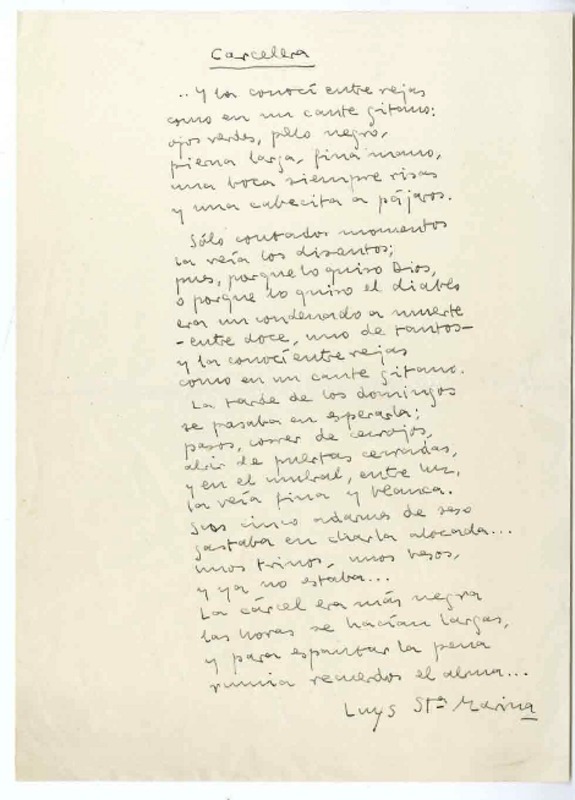 Carcelera
..Y la conocí entre rejas
como en un cante gitano:
ojos verdes, pelo negro,
pierna larga, fina mano,
una boca siempre risas
y una cabecita a pájaros.
Sólo contados momentos
la veía los disantos;
pues, porque lo quiso Dios,
o porque lo quiso el diablo
era un condenado a muerte
-entre doce, uno de tantos-
y la conocí entre rejas
como en un cante gitano.
La tarde de los domingos
se pasaba en esperarla;
pasos, correr de cerrojos,
abrir de puertas cerradas,
y en el umbral, entre luz,
la veía fina y blanca.
Sus cinco adarmes de seso
gastaba en charla alocada...
unos trinos, unos besos,
y ya no estaba...
La cárcel era más negra
las horas se hacían largas,
y para espantar la pena
rumia recuerdos el alma...
Luys Sta Marina